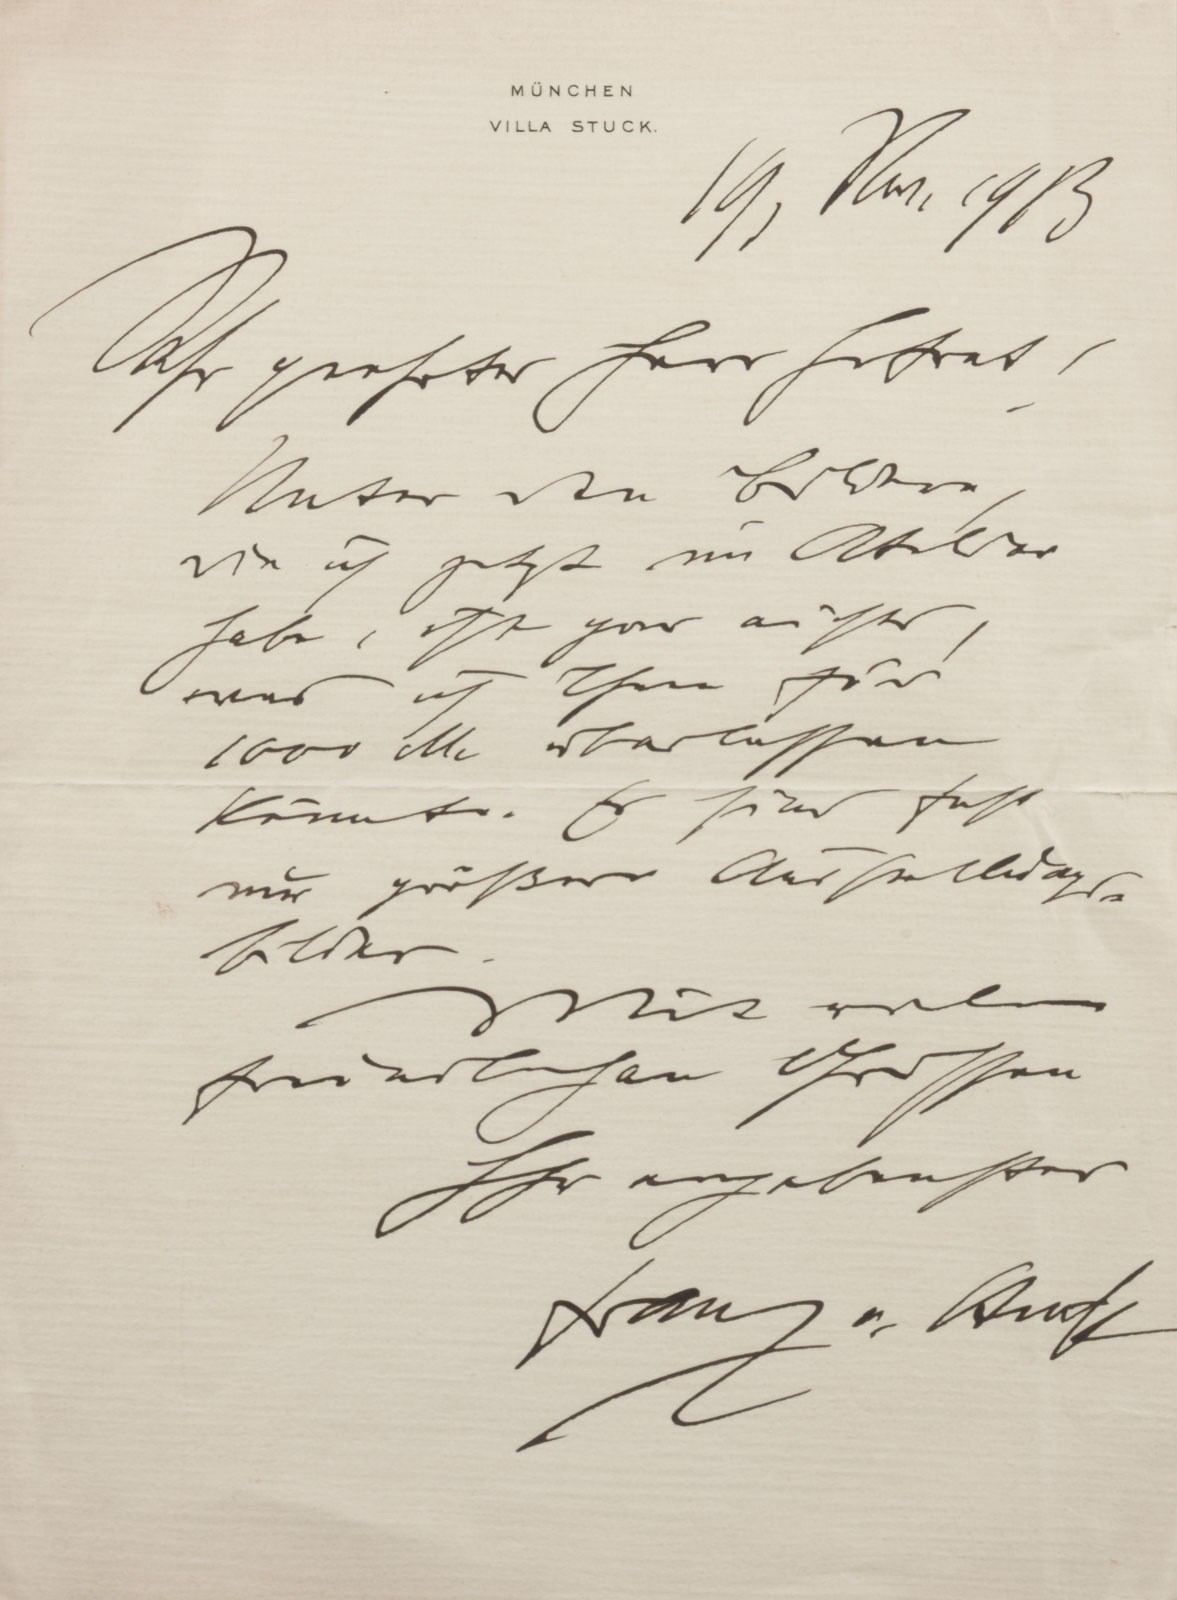 MÜNCHEN
VILLA STUCK.
19, Nov. 1913
Sehr geehrter Herr Hofrat,
Unter den Bildern,
die ich jetzt im Atelier
habe, ist gar nichts,
was ich Ihnen für
1000 M. überlassen
könnte. Es sind fast
nur größere Ausstellungs-
bilder.
Mit vielen
freundlichen Grüssen
Ihr ergebenster
Franz v. Stuck